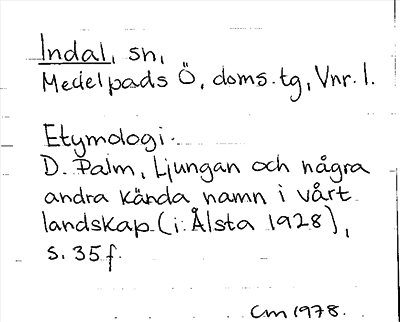 Indal, sn,
Medelpads Ö. doms.tg, Vnr. l.
Etymologi.
D. Palm, Ljungan och några
andra kända namn i vårt
landskap (i: Ålsta 1928),
s. 35 f.
Cm 1978.